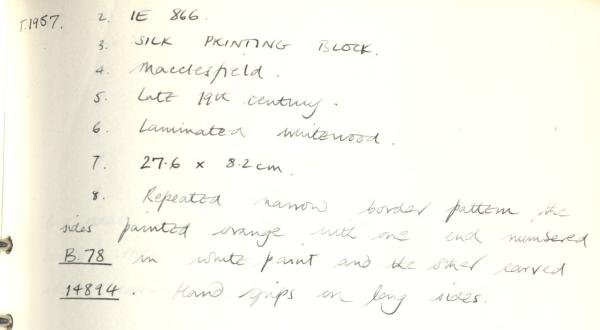 T.1957. 2. IE 866.
3. SILK PRINTING BLOCK.
4. Macclesfield.
5. Late 19th century.
6. Laminated whitewood.
7. 27.6 x 8.2 cm.
8. Repeated narrow border pattern, the
sides painted orange with one end numbered
B.78 in white paint and the other carved
14894. Hand grips on long sides.